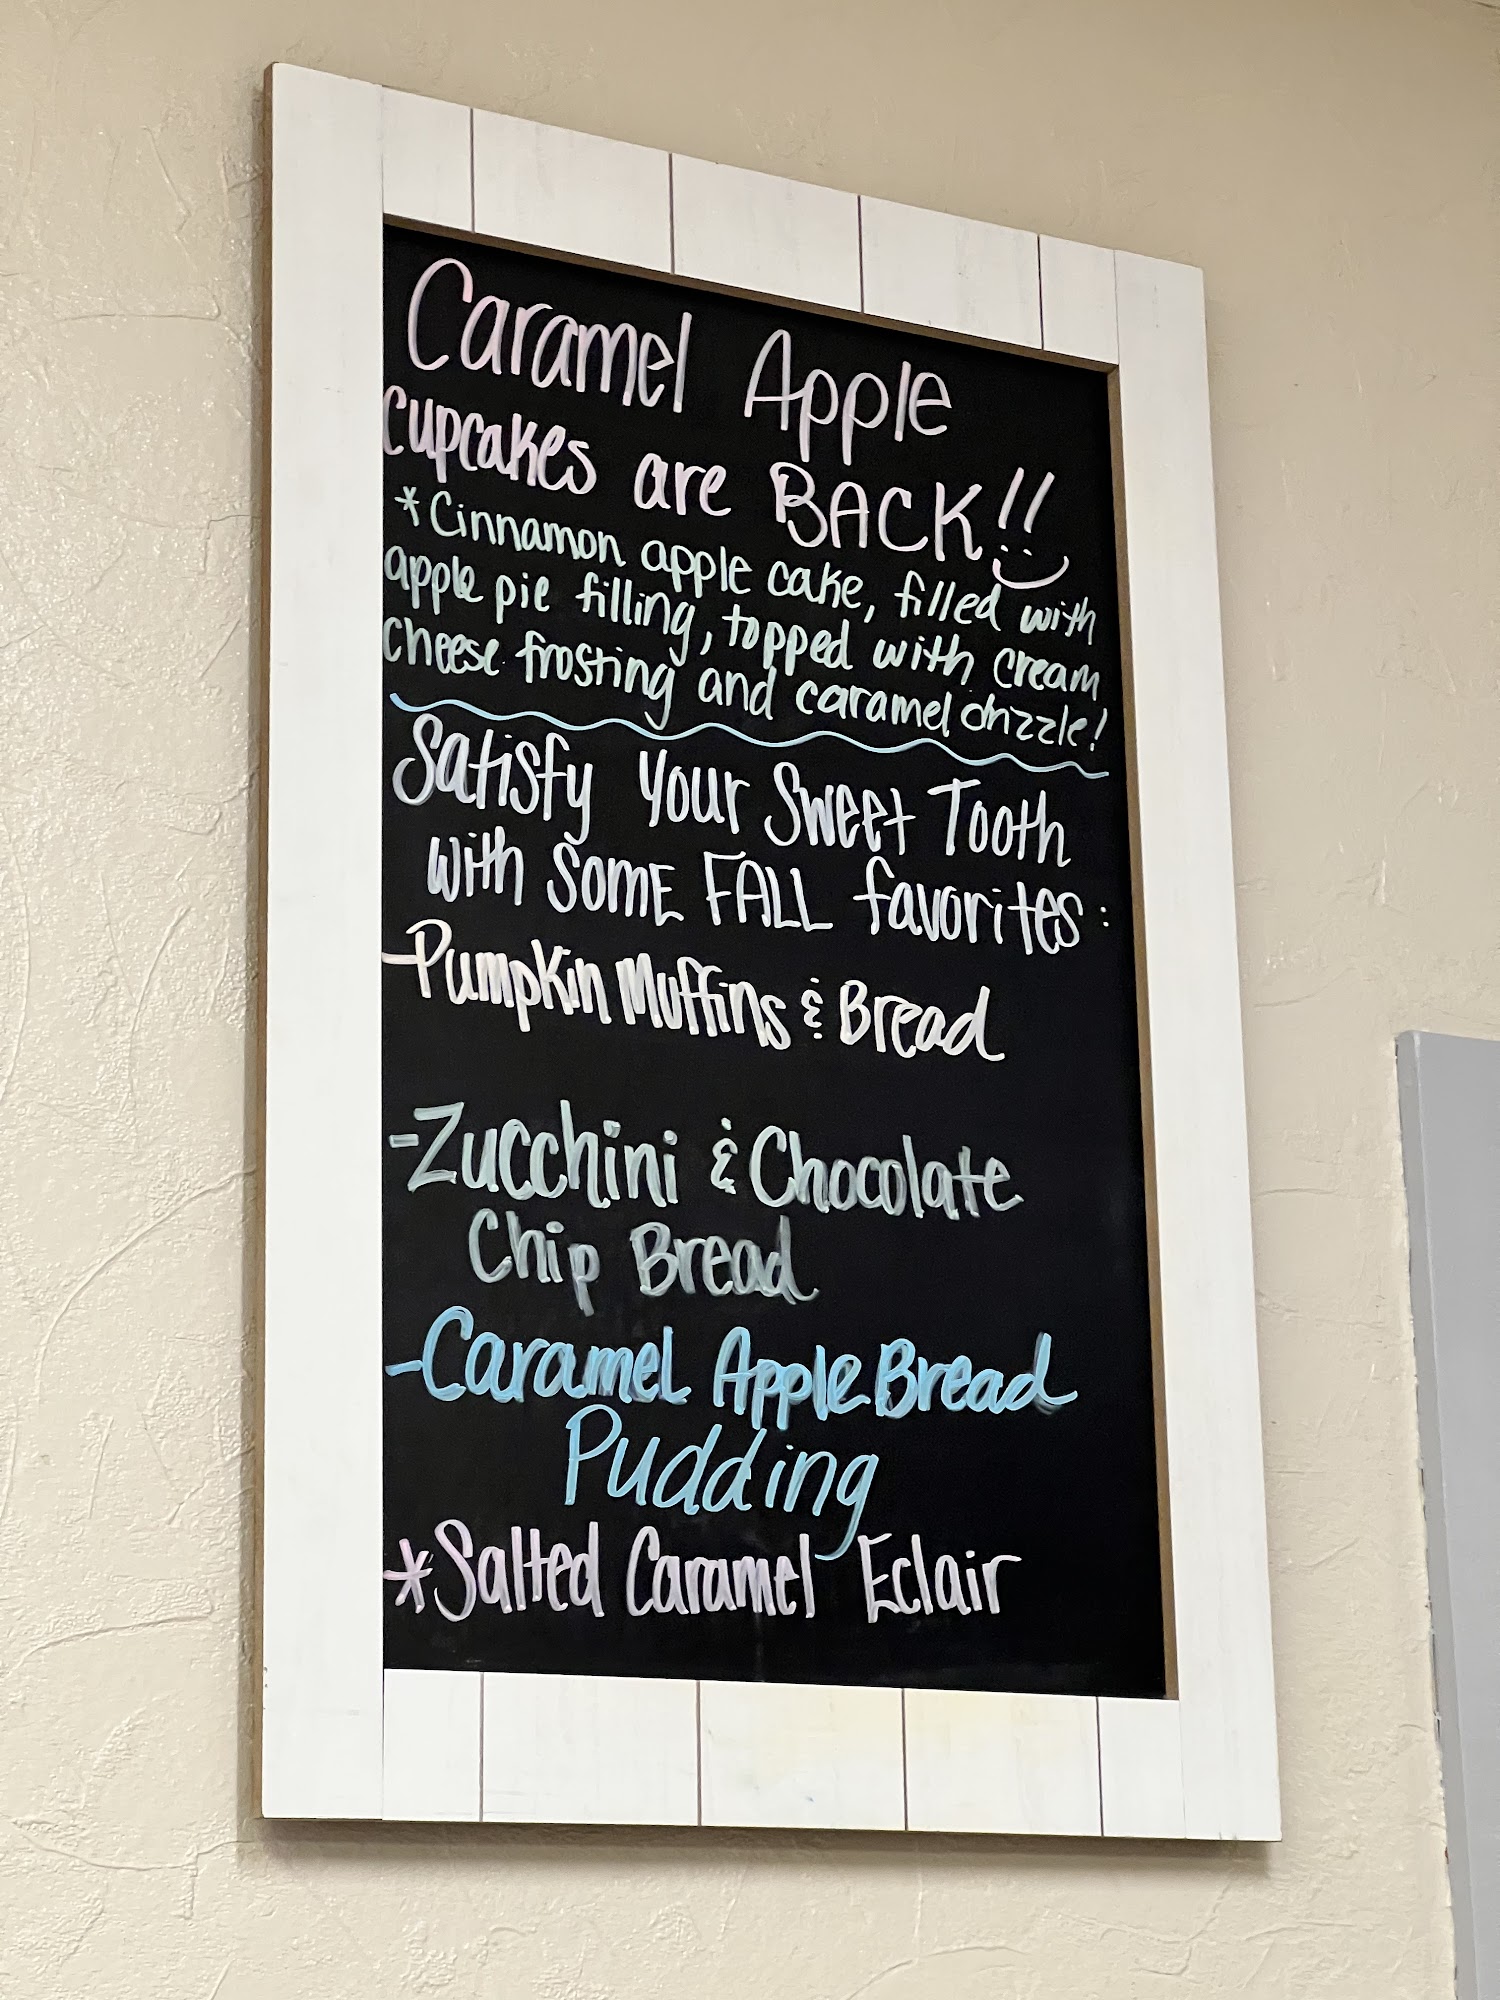 Caramel Apple
cupcakes are BACK!!
*Cinnamon apple cake, filled with
apple pie filling, topped with cream
cheese frosting and caramel drizzle!
Satisfy your Sweet Tooth
with SomE FALL favorites:
-Pumpkin Muffins & Bread
-Zucchini & Chocolate
Chip Bread
-Caramel Apple Bread
Pudding
*Salted Caramel Eclair